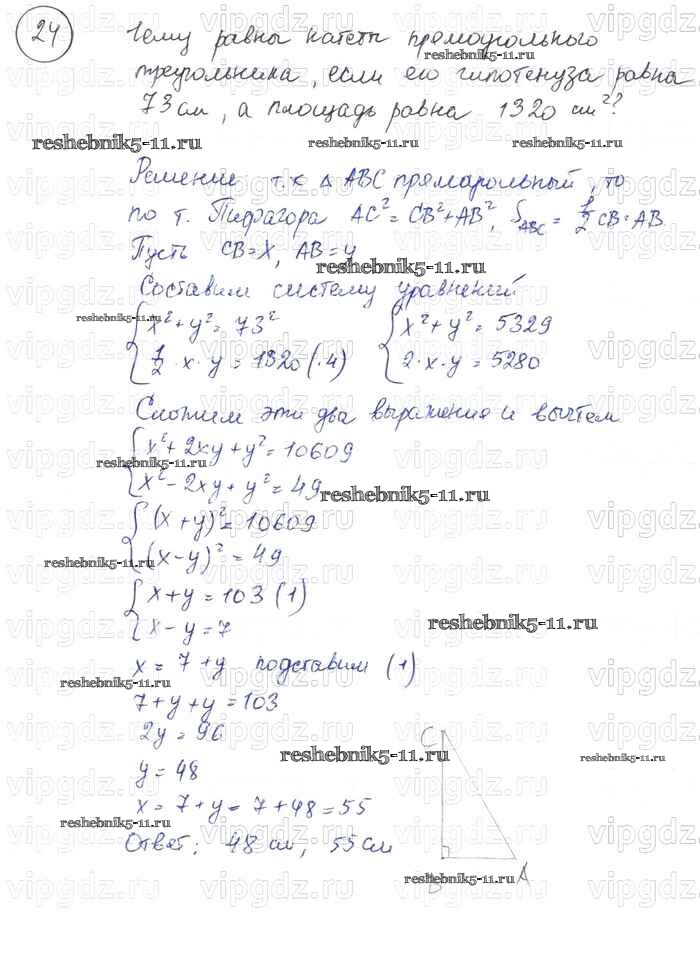 24
Чему равны катеты прямоугольного
треугольника, если его гипотенуза равна
73 см, а площадь равна 1320 см²?
reshebnik5-11.ru
Решение т.к △ ABC прямоугольный, то
по т. Пифагора AC² = CB² + AB², S_ABC = 1/2 CB · AB
Пусть CB = x, AB = y
Составим систему уравнений
{ x² + y² = 73²   { x² + y² = 5329
1/2 · x · y = 1320 (·4)   2 · x · y = 5280
Сложим эти два выражения и вычтем
{ x² + 2xy + y² = 10609
x² - 2xy + y² = 49
{ (x + y)² = 10609
(x - y)² = 49
{ x + y = 103 (1)
x - y = 7
x = 7 + y подставим (1)
7 + y + y = 103
2y = 96
y = 48
x = 7 + y = 7 + 48 = 55
Ответ: 48 см, 55 см
C
B A
vipgdz.ru